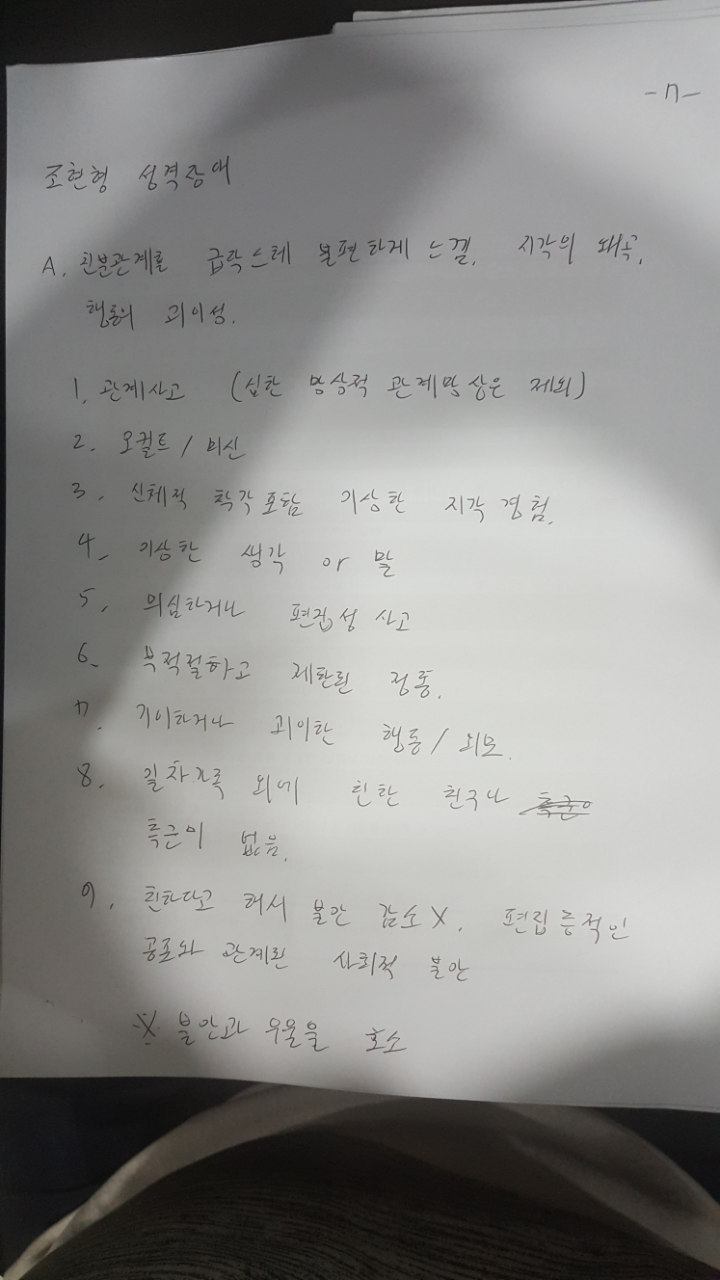 -7-
조현형 성격장애
A. 친분관계를 급작스레 불편하게 느낌. 지각의 왜곡.
행동의 괴이성.
1. 관계사고 (심한 망상적 관계망상은 제외)
2. 오컬트 / 미신
3. 신체적 착각 포함 기상한 지각 경험.
4. 기상한 생각 or 말
5. 의심하거나 편집성 사고
6. 부적절하고 제한된 정동.
7. 기이하거나 괴이한 행동 / 외모.
8. 일차가족 외에 친한 친구나
측근이 없음.
9. 친하다고 해서 불안 감소 X. 편집증적인
공포와 관계된 사회적 불안
※ 불안과 우울을 호소